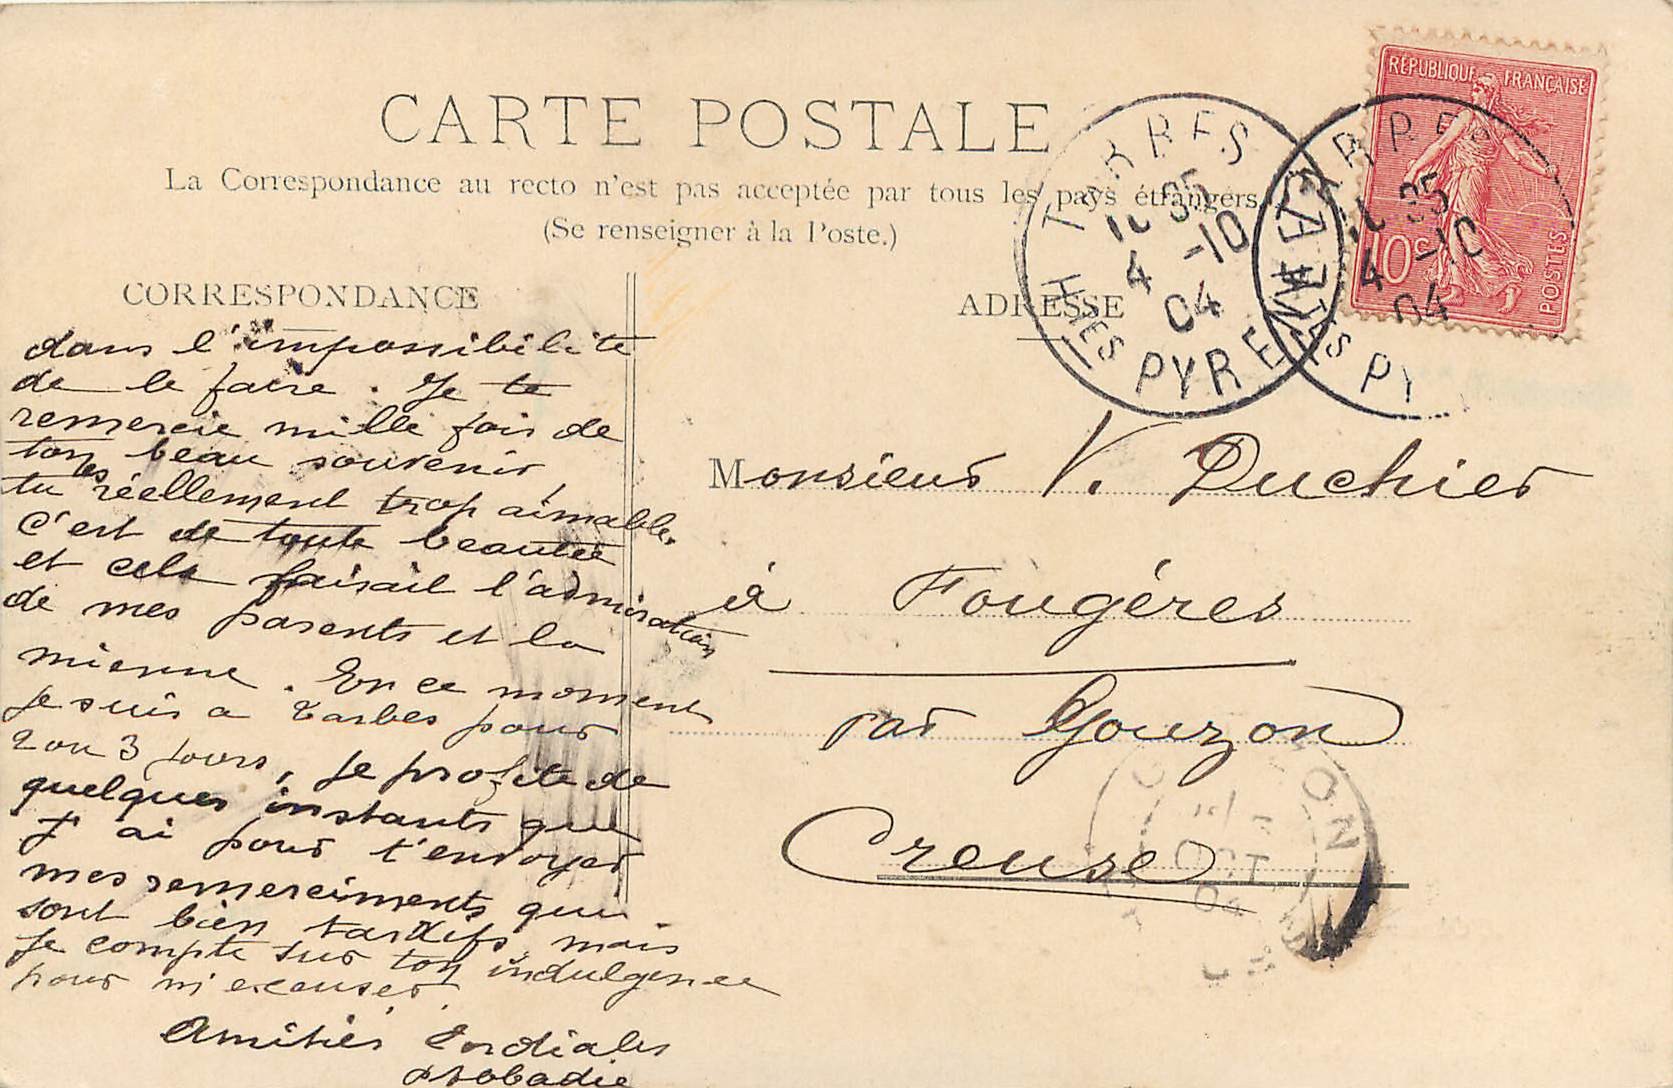 CARTE POSTALE
La Correspondance au recto n'est pas acceptée par tous les pays étrangers
(Se renseigner à la Poste.)
CORRESPONDANCE
dans l'impossibilité
de le faire. Je te
remercie mille fois de
ton beau souvenir
tu es réellement trop aimable,
c'est de toute beautée
et cela faisait l'admiration
de mes parents et la
mienne. En ce moment
je suis a Tarbes pour
2 ou 3 jours, je profite de
quelques instants que
j'ai pour t'envoyer
mes remerciments qui
sont bien tardifs, mais
je compte sur ton indulgence
pour m'excuser.
Amitiés Cordiales
ADRESSE
Monsieur V. Duchier
à Fougéres
par Gouzon
Creuse
RÉPUBLIQUE FRANÇAISE
10c
POSTES
TARBES
4 -10
04
HTES PYRE
TARBES
4 -10
04
TES PY